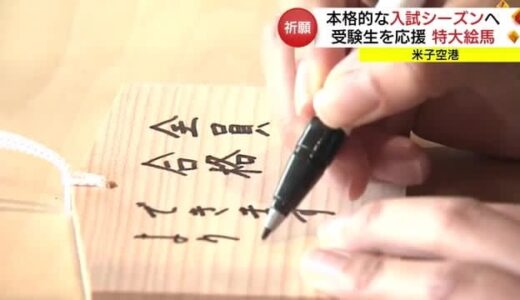 祈願
本格的な入試シーズンへ
受験生を応援 特大絵馬
米子空港
全員
合格
できます
より